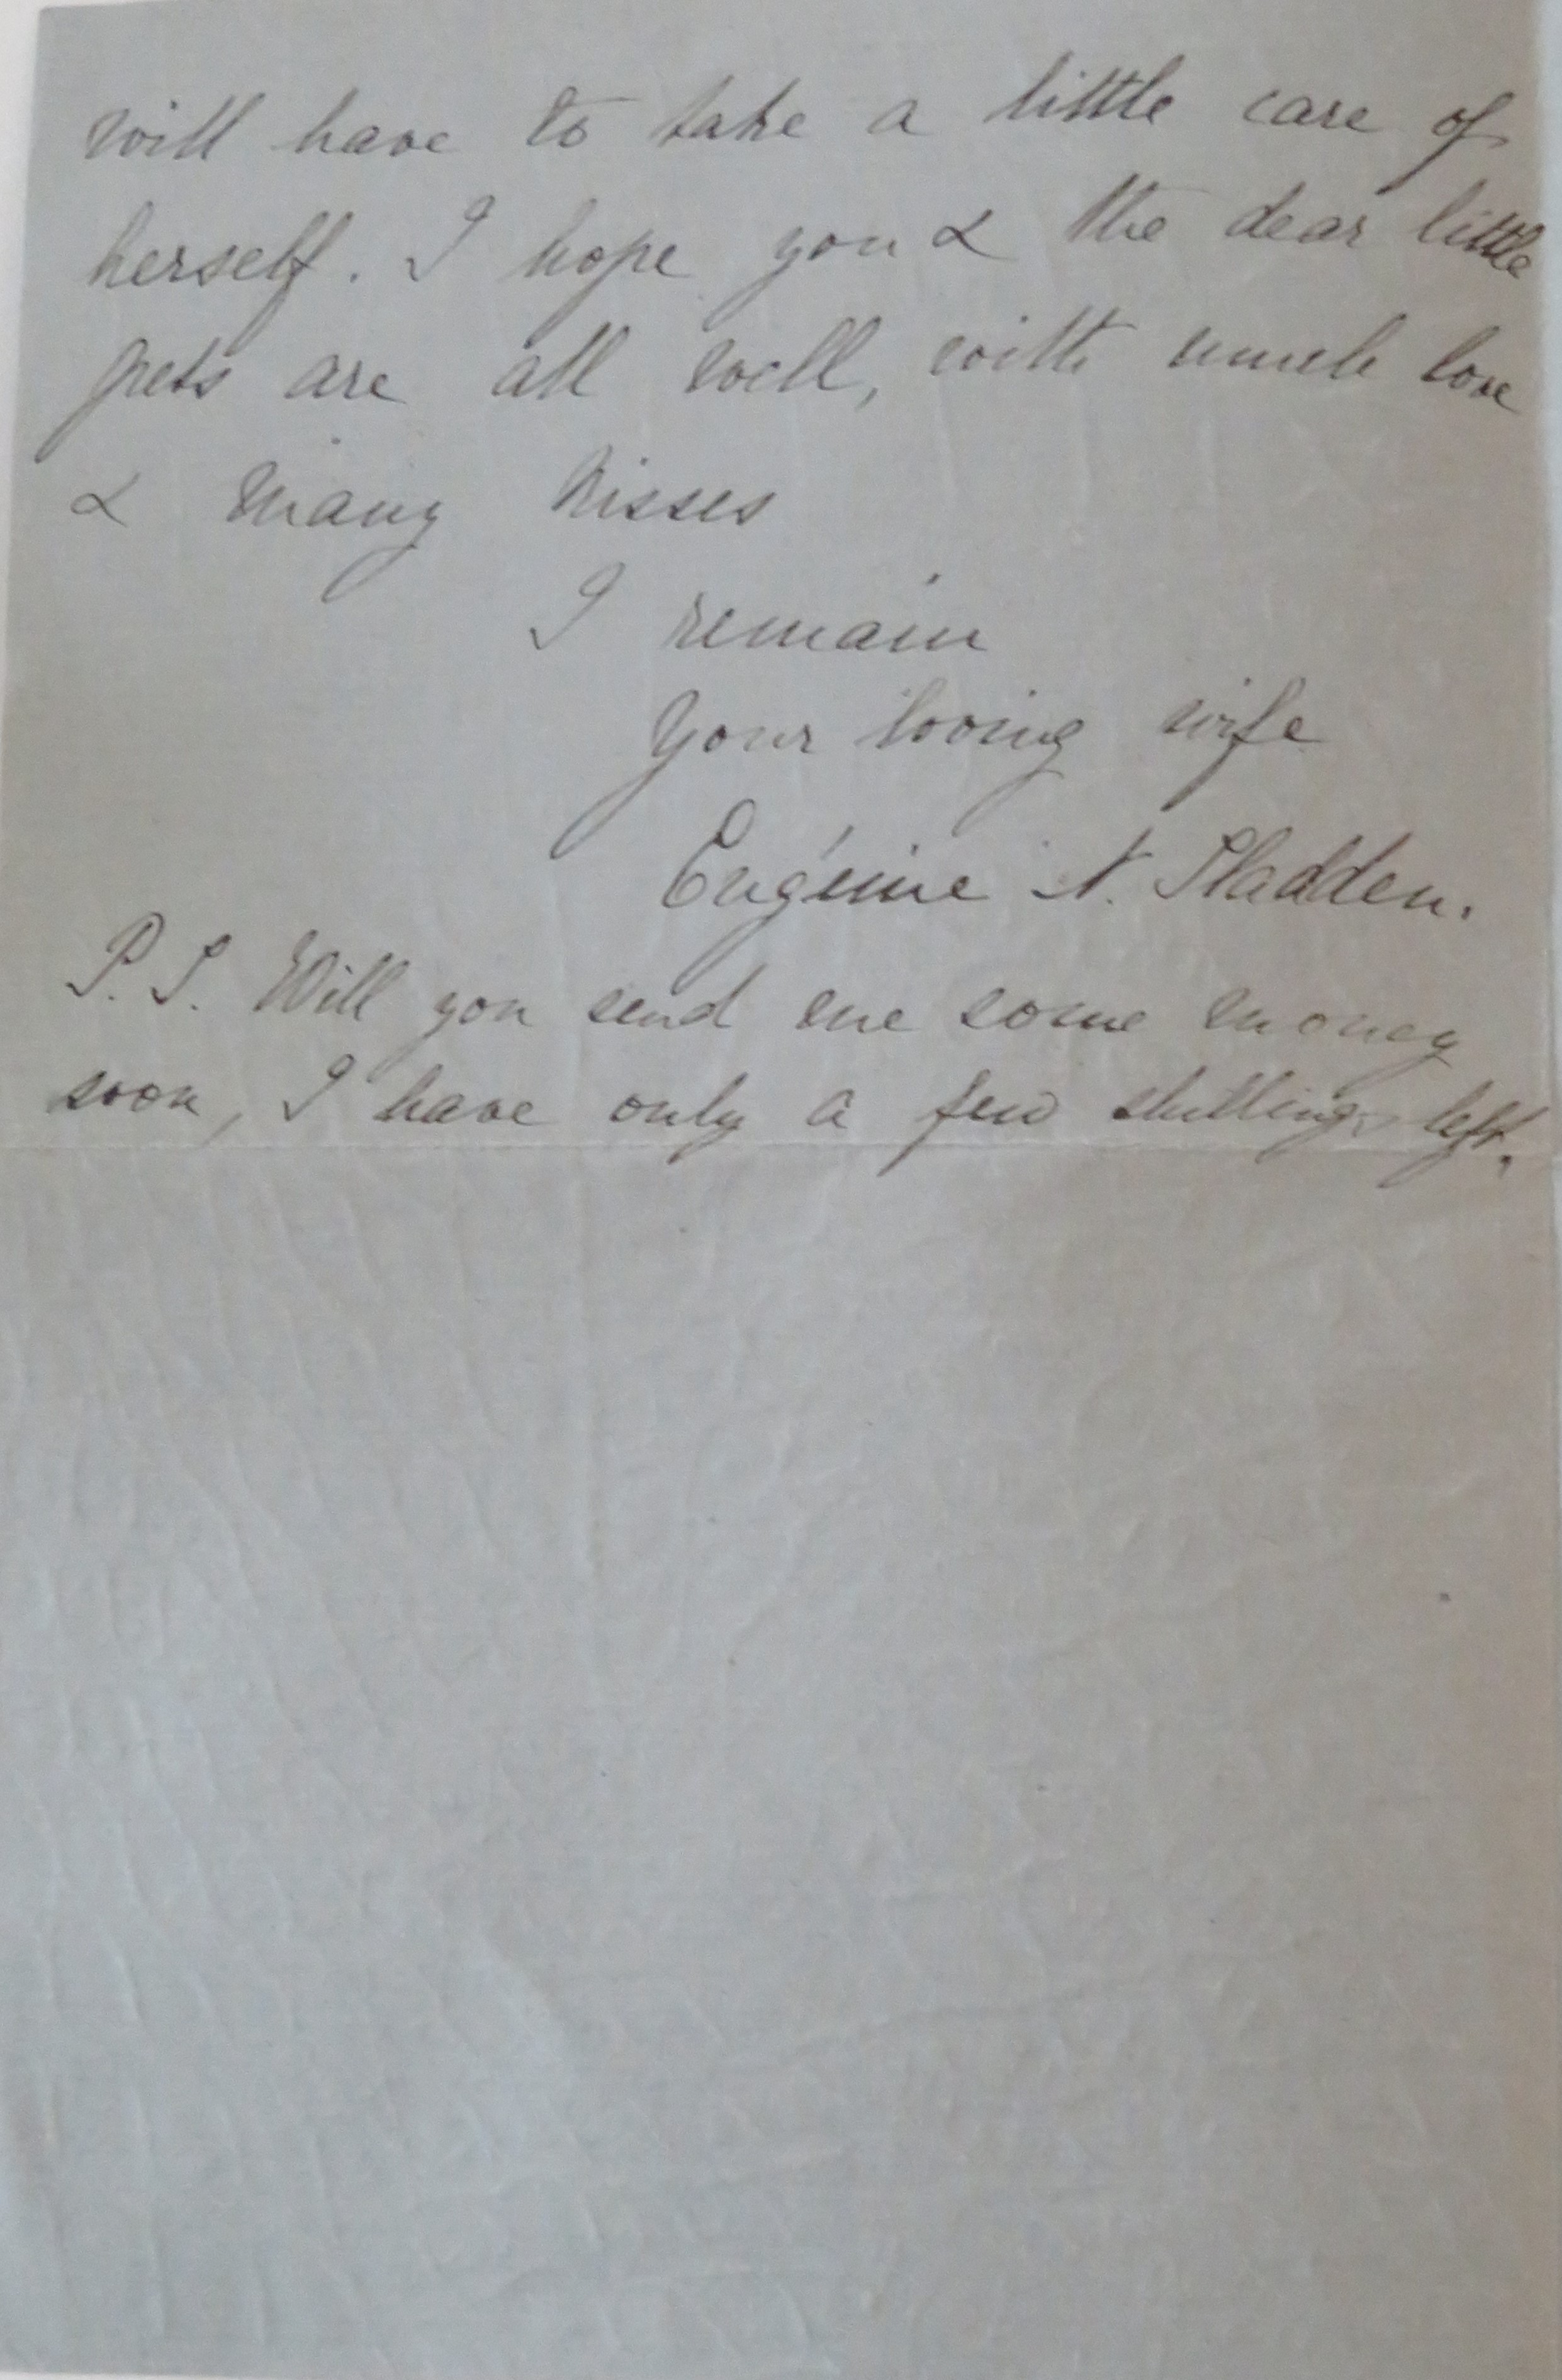 will have to take a little care of
herself. I hope you & the dear little
pets are all well, with much love
& many kisses
I remain
Your loving wife
Eugénie N. Sladden.
P. S. Will you send me some money
soon, I have only a few shillings left.